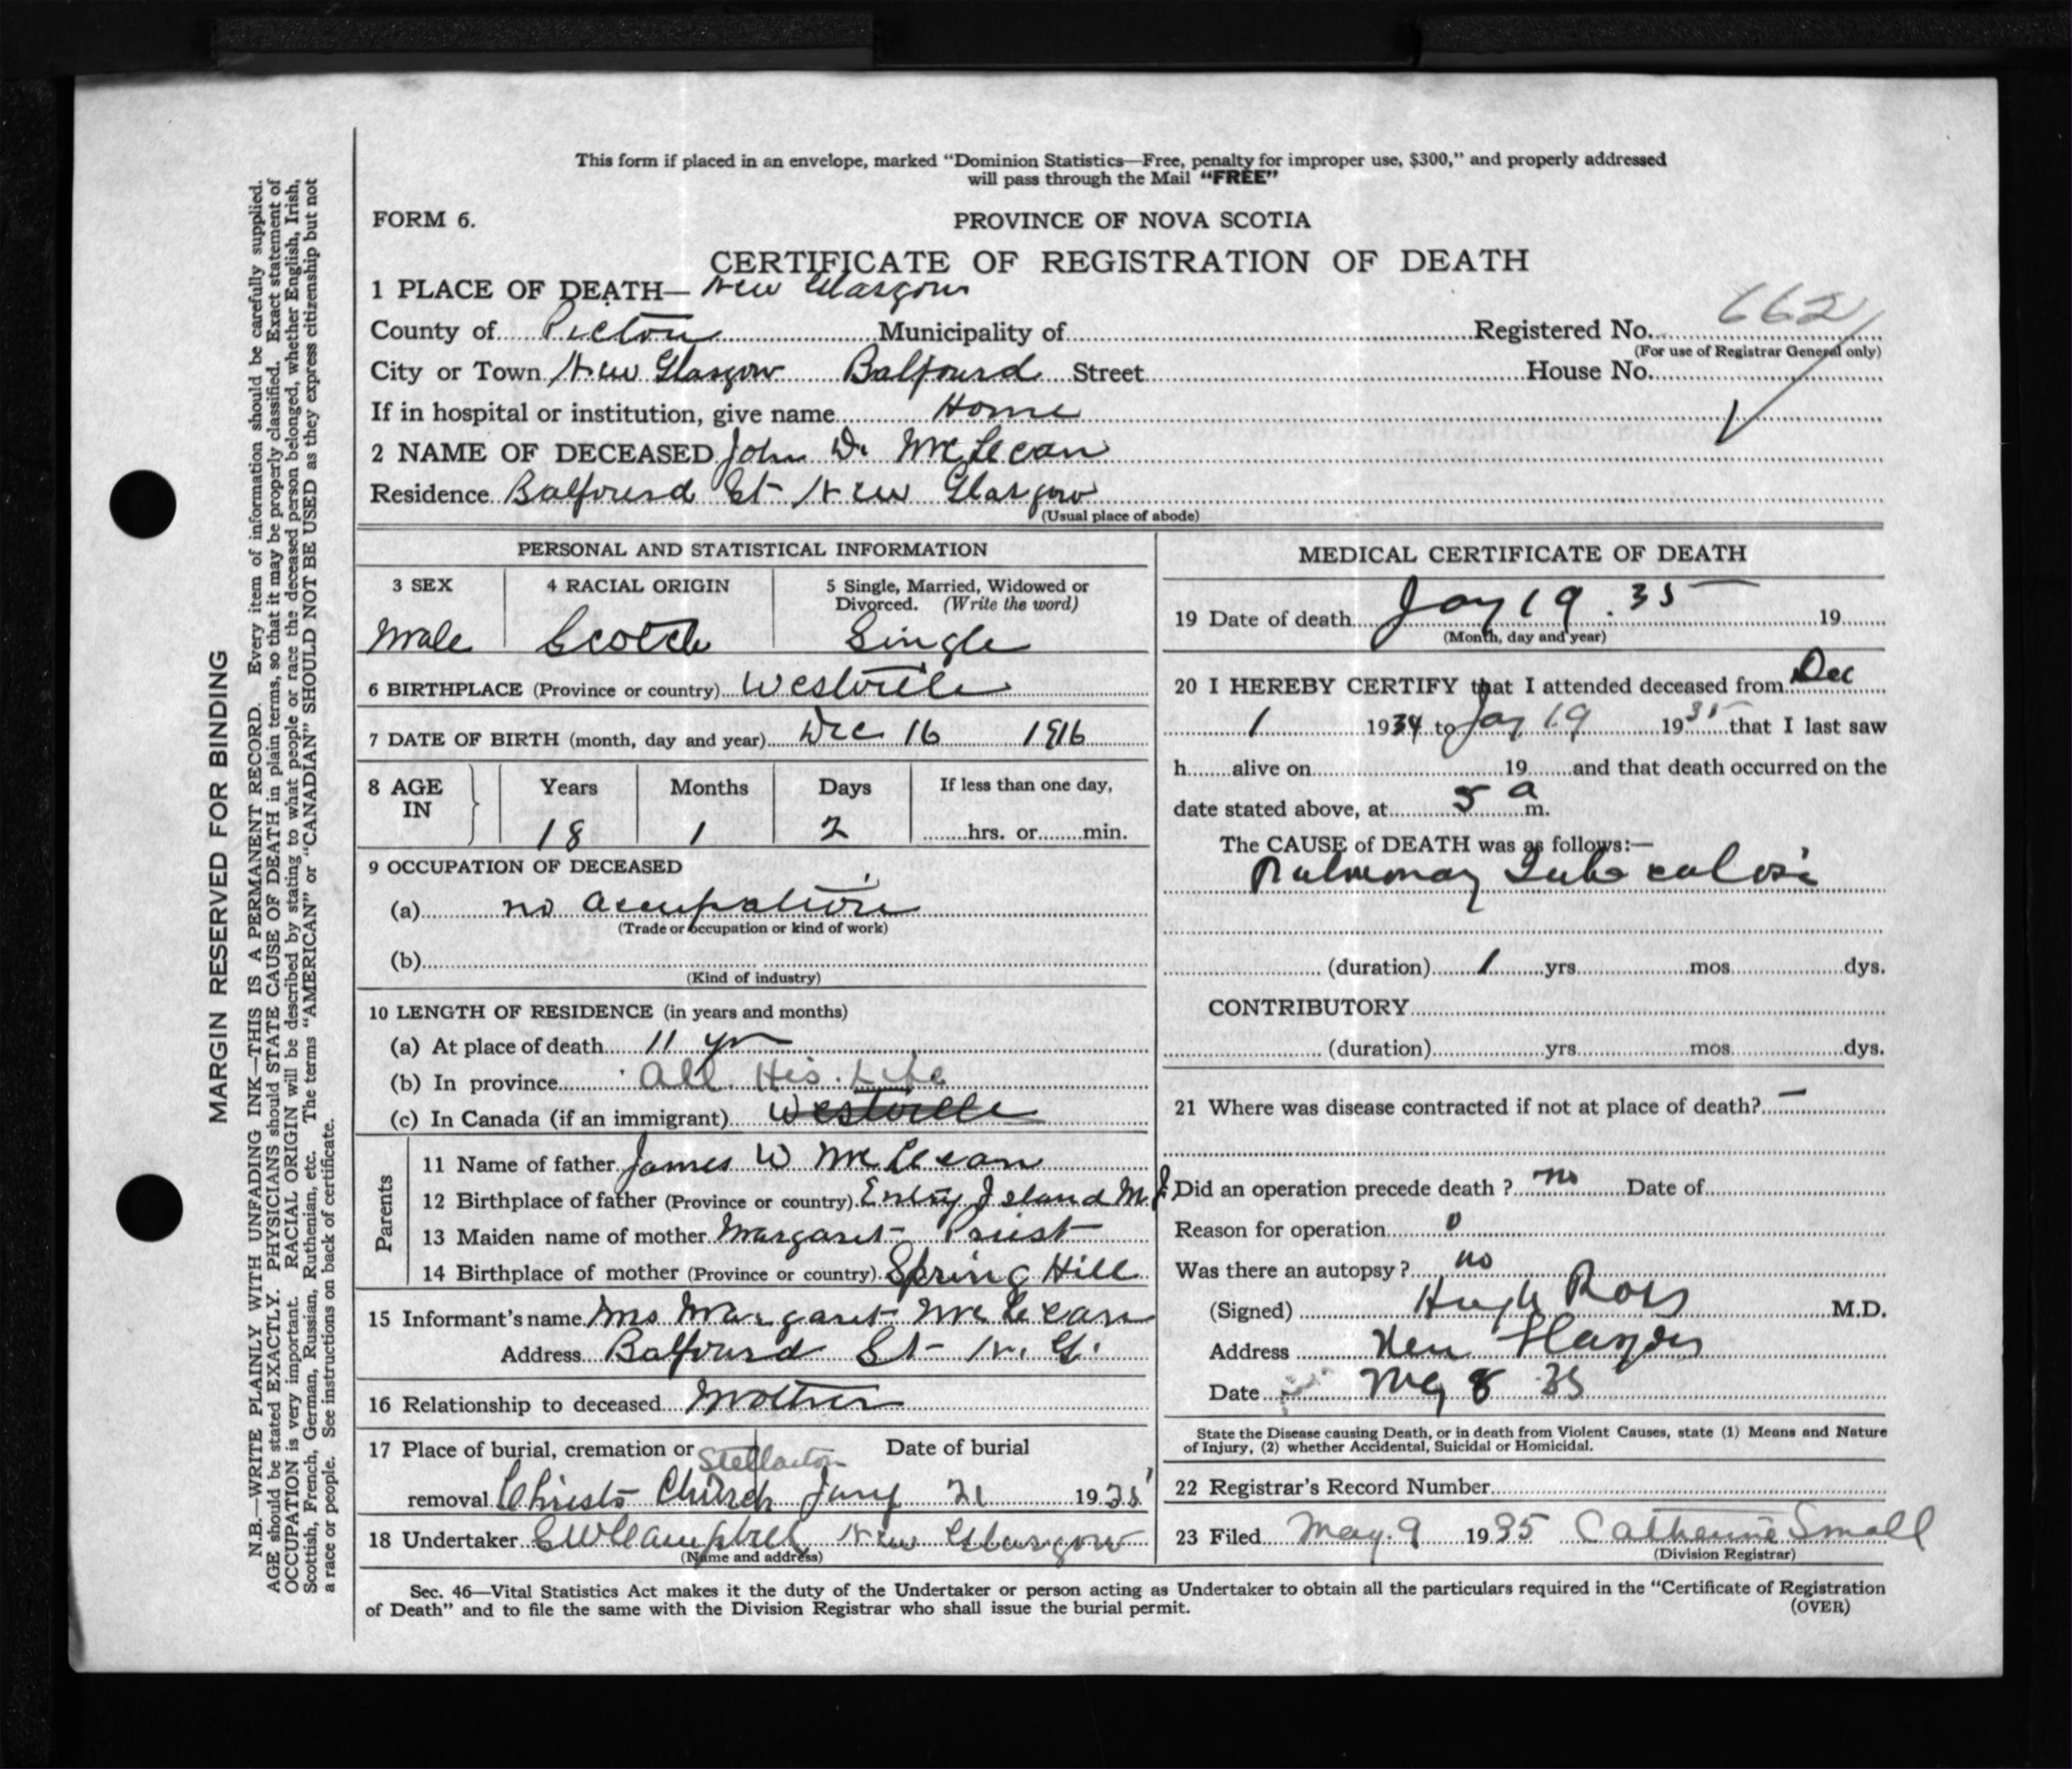 This form if placed in an envelope, marked "Dominion Statistics—Free, penalty for improper use, $300," and properly addressed
will pass through the Mail "FREE"
FORM 6.
PROVINCE OF NOVA SCOTIA
CERTIFICATE OF REGISTRATION OF DEATH
1 PLACE OF DEATH— New Glasgow
County of Pictou Municipality of Registered No. 662
(For use of Registrar General only)
City or Town New Glasgow Balfourd Street House No.
If in hospital or institution, give name Home
2 NAME OF DECEASED John D. McLean
Residence Balfourd St New Glasgow
(Usual place of abode)
PERSONAL AND STATISTICAL INFORMATION
3 SEX 4 RACIAL ORIGIN 5 Single, Married, Widowed or
Divorced. (Write the word)
Male Scotch Single
6 BIRTHPLACE (Province or country) Westville
7 DATE OF BIRTH (month, day and year) Dec 16 1916
8 AGE IN Years Months Days If less than one day,
18 1 2 hrs. or min.
9 OCCUPATION OF DECEASED
(a) no accupation
(Trade or occupation or kind of work)
(b)
(Kind of industry)
10 LENGTH OF RESIDENCE (in years and months)
(a) At place of death 11 yr
(b) In province All His Life
(c) In Canada (if an immigrant) Westville
Parents
11 Name of father James W McLean
12 Birthplace of father (Province or country) Entry Island M. I.
13 Maiden name of mother Margaret Priest
14 Birthplace of mother (Province or country) Spring Hill
15 Informant's name Mrs Margaret McLean
Address Balfourd St N. G.
16 Relationship to deceased Mother
17 Place of burial, cremation or Stellarton Date of burial
removal Christs Church Jany 21 1935
18 Undertaker E W Campbell New Glasgow
(Name and address)
MEDICAL CERTIFICATE OF DEATH
19 Date of death Jay 19. 35 19
(Month, day and year)
20 I HEREBY CERTIFY that I attended deceased from Dec
1 1934 to Jay 19 1935 that I last saw
h alive on 19 and that death occurred on the
date stated above, at 5 a m.
The CAUSE of DEATH was as follows:—
Pulmonay Tuberculosi
(duration) 1 yrs. mos. dys.
CONTRIBUTORY
(duration) yrs. mos. dys.
21 Where was disease contracted if not at place of death? —
Did an operation precede death ? no Date of
Reason for operation 0
Was there an autopsy ? no
(Signed) Hugh Ross M.D.
Address New Glasgow
Date May 8 35
State the Disease causing Death, or in death from Violent Causes, state (1) Means and Nature
of Injury, (2) whether Accidental, Suicidal or Homicidal.
22 Registrar's Record Number
23 Filed May. 9 1935 Catherine Small
(Division Registrar)
Sec. 46—Vital Statistics Act makes it the duty of the Undertaker or person acting as Undertaker to obtain all the particulars required in the "Certificate of Registration
of Death" and to file the same with the Division Registrar who shall issue the burial permit.
(OVER)
MARGIN RESERVED FOR BINDING
N.B.—WRITE PLAINLY WITH UNFADING INK—THIS IS A PERMANENT RECORD. Every item of information should be carefully supplied.
AGE should be stated EXACTLY. PHYSICIANS should STATE CAUSE OF DEATH in plain terms, so that it may be properly classified. Exact statement of
OCCUPATION is very important. RACIAL ORIGIN will be described by stating to what people or race the deceased person belonged, whether English, Irish,
Scottish, French, German, Russian, Ruthenian, etc. The terms "AMERICAN" or "CANADIAN" SHOULD NOT BE USED as they express citizenship but not
a race or people. See instructions on back of certificate.